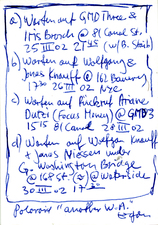 a) Warten auf GMD Three &
Iris Brosch @ 81 Canal St.
25 III 02 21 45 (w/B. Steib)
b) Warten auf Wolfgang &
Jonas Knauff @ 162 Bowery
17 30 26 III 02 NYC
c) Warten auf Rückruf Ariane
(Focus Money) @ GMD 3
15 15 81 Canal 28 III 02
d) Warten auf Wolfgan Knauff
+ Janos Niessen under
G. Washington Bridge
@ 168 St. @ Waterside
30 III 02 17
Polaroid "another W. A."